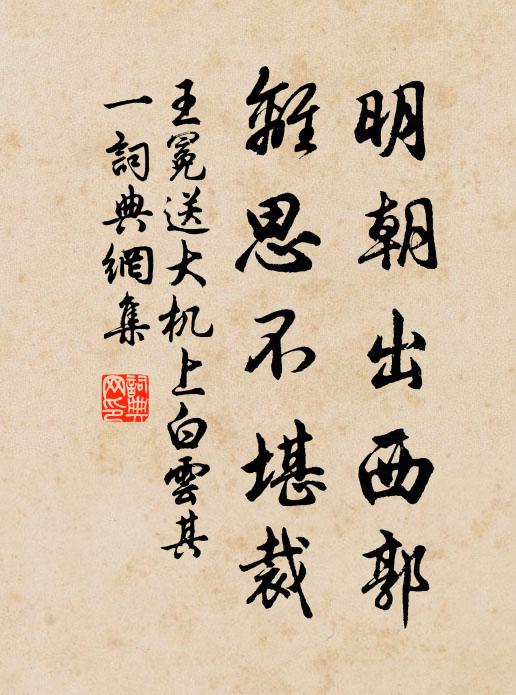 明朝出西郭
離思不堪裁
王冕送大机上白雲其
一詞典網集
詞典网印